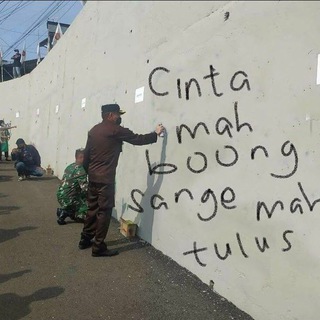 Cinta
mah
boong
sange mah
tulus